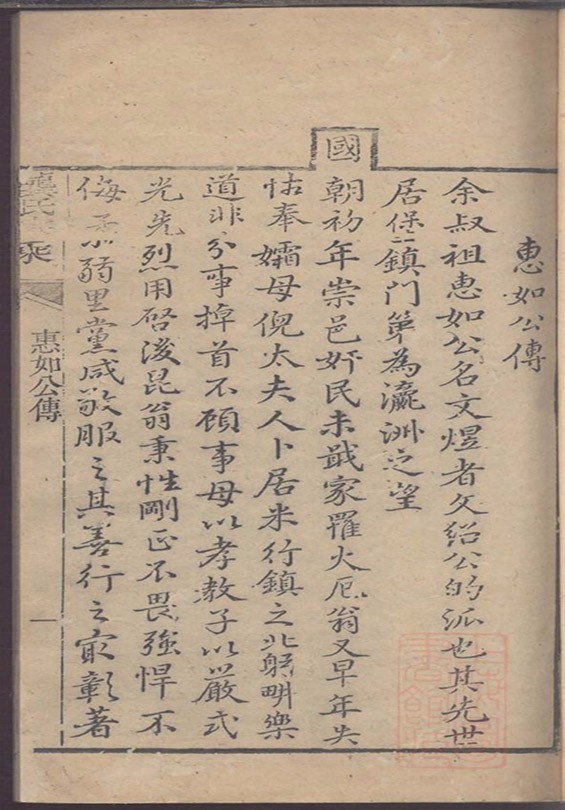 惠如公傳
余叔祖惠如公名文煜者文紹公的派也其先世
居堡鎮門第為瀛洲之望
國
朝初年崇邑奸民未戢家罹火厄翁又早年失
怙奉孀母倪太夫人卜居米行鎮之北躬明樂
道非分事掉首不顧事母以孝教子以嚴式
光先烈用啓後昆翁秉性剛正不畏強悍不
侮孤弱里黨咸敬服之其善行之寂彰著
龔氏家乘
惠如公傳
一